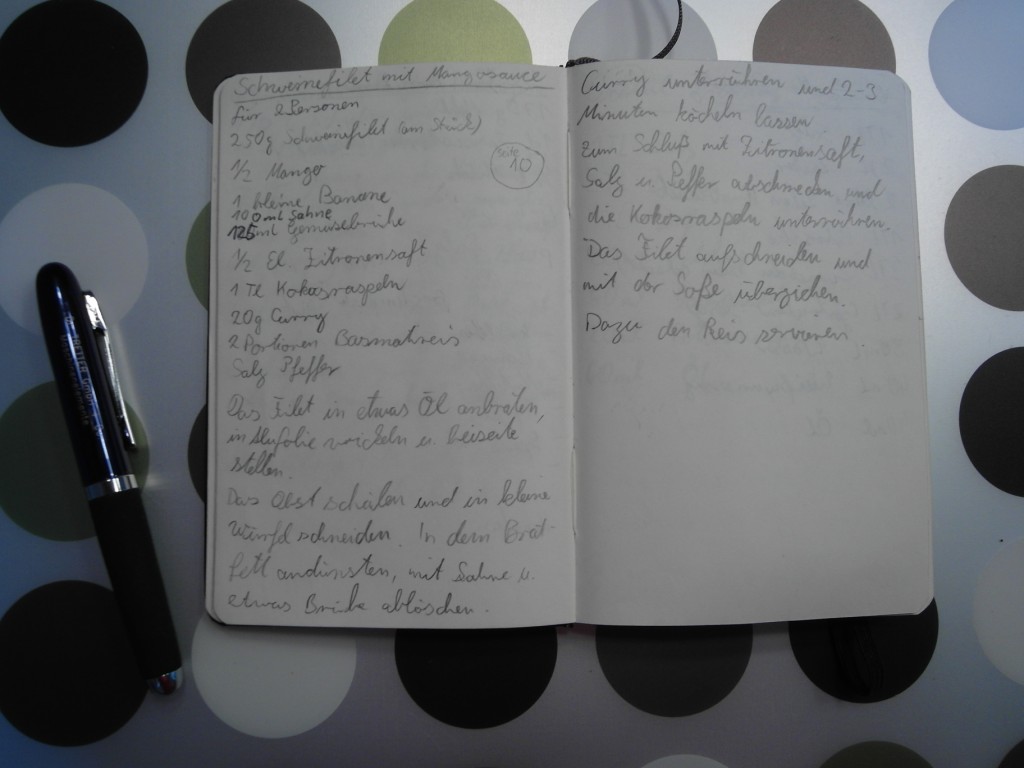 Schweinefilet mit Mangosauce
für 2 Personen
250g Schweinefilet (am Stück)
Seite 10
1/2 Mango
1 kleine Banane
100ml Sahne
125ml Gemüsebrühe
1/2 El Zitronensaft
1 Tl Kokosraspeln
20g Curry
2 Portionen Basmatireis
Salz Pfeffer
Das Filet in etwas Öl anbraten,
in Alufolie wickeln u. beiseite
stellen.
Das Obst schälen und in kleine
Würfel schneiden. In dem Brat-
fett andünsten, mit Sahne u.
etwas Brühe ablöschen.
Curry unterrühren und 2-3
Minuten köcheln lassen.
Zum Schluß mit Zitronensaft,
Salz u. Peffer abschmecken und
die Kokosraspeln unterrühren.
Das Filet aufschneiden und
mit der Soße überziehen.
Dazu den Reis servieren